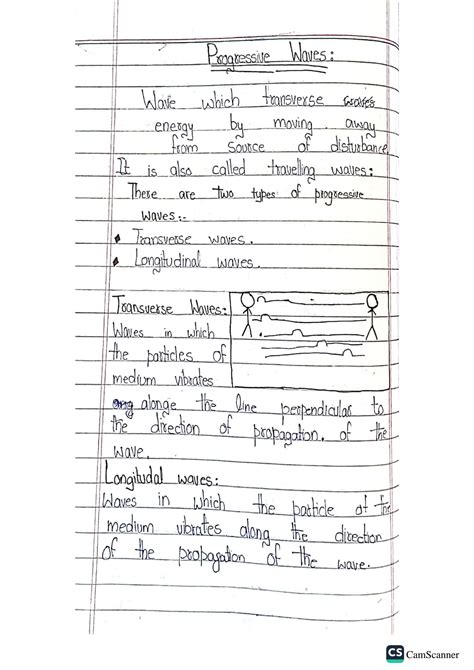 Progressive Waves:
Wave which transverse waves
energy by moving away
from source of disturbance
It is also called travelling waves:
There are two types of progressive
waves:-
• Transverse waves.
• Longitudinal waves.
Transverse Waves:
Waves in which
the particles of
medium vibrates
alonge the line perpendicular to
the direction of propagation. of the
wave.
Longitudal waves:
Waves in which the particle of the
medium vibrates along the direction
of the propagation of the wave.
CS CamScanner